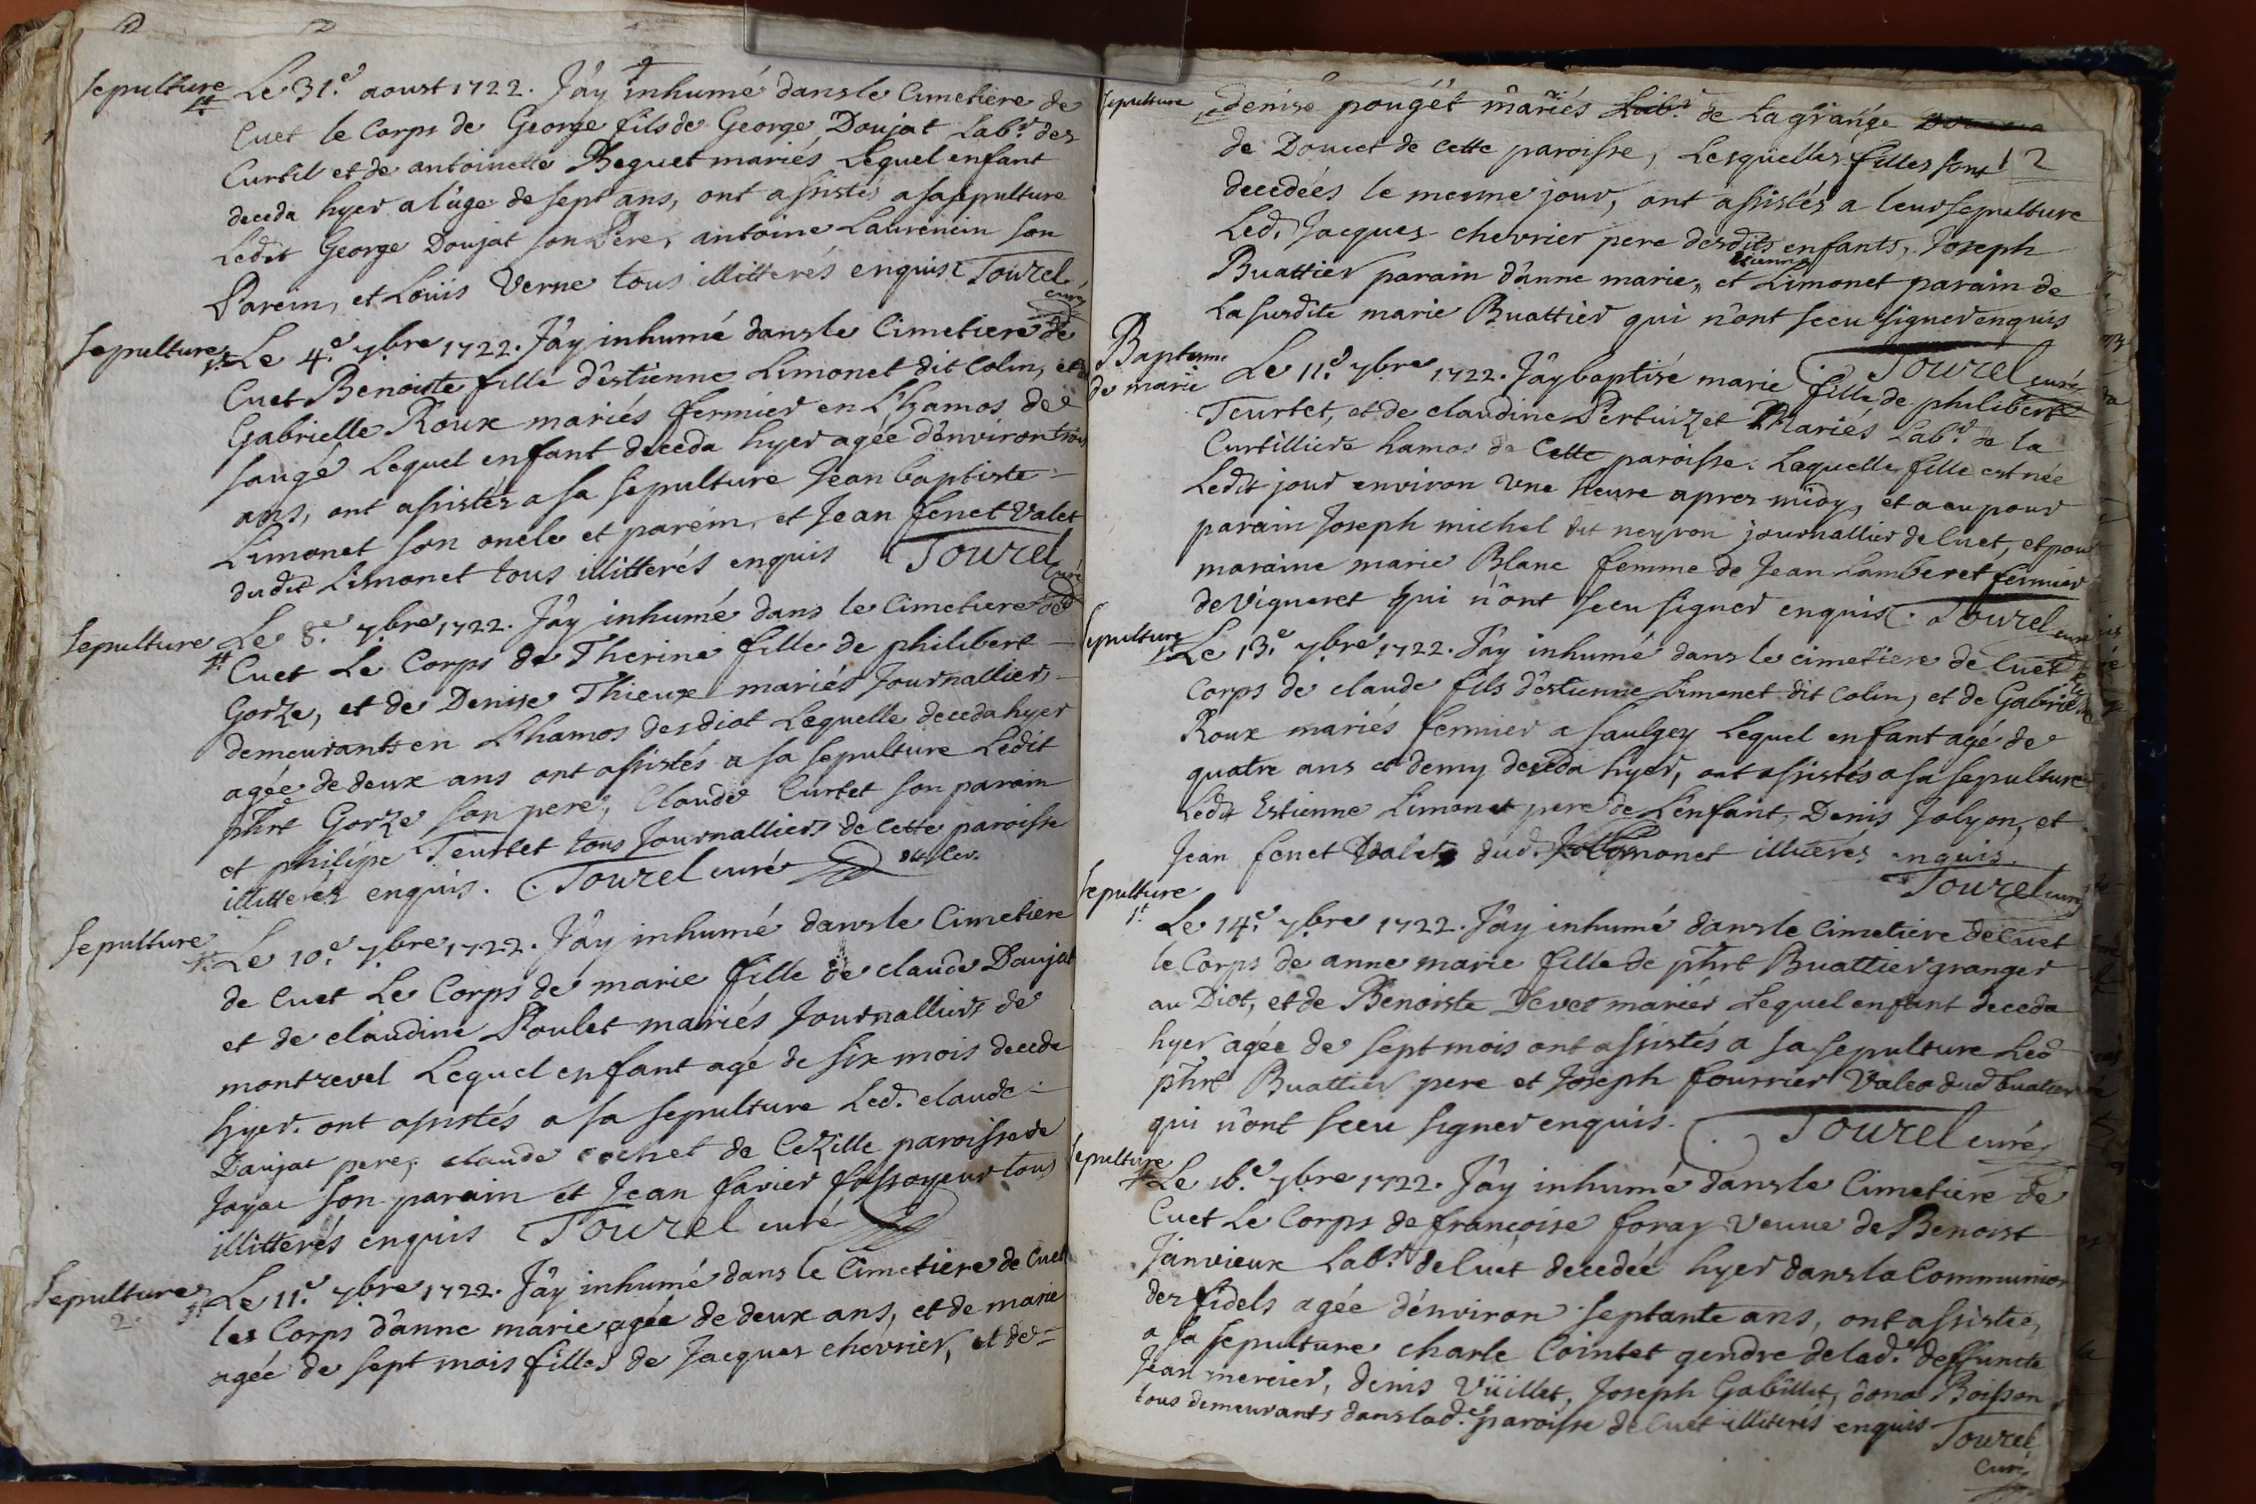 Sepulture
1t
Le 31.e aoust 1722. J'ây inhumé dans le Cimetiere de
Cuet le Corps de George fils de George Doujat Lab.r des
Curtil et de antoinette Beguet mariés Lequel enfant
deceda hyer a l'âge de sept ans, ont assistés a sa sepulture
Ledit George Doujat son Pere, antoine Laurencin son
Parein, et Loüis Verne tous illitterés enquis Tourel
curé
Sepulture
1t
Le 4.e 7.bre 1722. J'ây inhumé dans le Cimetiere de
Cuet Benoiste fille d'êstienne Limonet dit Colin, et de
Gabrielle Roux mariés fermier en L'hamos de
saugé Lequel enfant deceda hyer agée d'environ trois
ans, ont assistés a sa sepulture Jean baptiste
Limonet son oncle et parein, et Jean fenet Valet
dudit Limonet tous illitterés enquis Tourel
curé
Sepulture
1t
Le 8.e 7.bre 1722. J'ây inhumé dans le Cimetiere de
Cuet Le Corps de Therine fille de philibert
Gorze, et de Denise Thieux mariés Journalliers
demeurants en L'hamos des diot Lequelle deceda hyer
agée de deux ans ont assistés a sa sepulture Ledit
phrt Gorze son pere, Claude Curtet son parain
et philipe Teurtet tous Journalliers de Cette paroisse
illitterés enquis. Tourel curé
Sepulture
1t
Le 10.e 7.bre 1722. J'ây inhumé dans le Cimetiere
de Cuet Le Corps de marie fille de claude Daujat
et de claudine Poulet mariés Journalliers de
montrevel Lequel enfant agé de six mois deceda
hyer. ont assistés a sa sepulture Led. claude
Daujat pere, claude cochet de Cezille paroisse de
Jayac son parain et Jean favier fossoyeur tous
illitterés enquis Tourel curé
Sepulture
2.
1t
Le 11.e 7.bre 1722. J'ây inhumé dans le Cimetiere de Cuet
les Corps d'anne marie agée de deux ans, et de marie
agée de sept mois filles de Jacques chevrier, et de
Sepulture
denise pougét mariés Lab.r de La grange
de Doucet de cette paroisse, Lesquelles filles sont 12
decedées le mesme jour, ont assistés a leur sepulture
Led. Jacques chevrier pere desdits enfants, Joseph
Buattier parain d'anne marie, et estienne Limonet parain de
La susdite marie Buattier qui n'ont sceu signer enquis
Tourel curé
Baptesme
de marie
Le 11.e 7.bre 1722. J'ây baptisé marie fille de philibert
Teurtet, et de claudine Pertuizet Mariés Lab.r de la
Curtilliere hamos de Cette paroisse. Laquelle fille est née
Ledit jour environ Vne heure apres midy, et a eu pour
parain Joseph michel dit neyron journallier de Cuet, et pour
maraine marie Blanc femme de Jean Lamberet fermier
de Vigneret qui n'ont sceu signer enquis. Tourel curé
Sepulture
1t
Le 13.e 7.bre 1722. J'ây inhumé dans le cimetiere de Cuet le
Corps de claude fils d'estienne Limonet dit Colin, et de Gabrielle
Roux mariés fermier a saulgey Lequel enfant agé de
quatre ans et demy deceda hyer, ont assistés a sa sepulture
Ledit Estienne Limonet pere de L'enfant, Denis Jolyon, et
Jean fenet Valets dud. Limonet illiterés enquis.
Tourel curé
Sepulture
1t
Le 14.e 7.bre 1722. J'ây inhumé dans le Cimetiere de Cuet
le Corps de anne marie fille de phrt Buattier granger
au Diot, et de Benoiste Devet mariés Lequel enfant deceda
hyer agée de sept mois ont assistés a sa sepulture Led
phrt Buattier pere et Joseph fourrier Valet dud buatier
qui n'ont sceu signer enquis. Tourel curé
Sepulture
1t
Le 16.e 7.bre 1722. J'ây inhumé dans le Cimetiere de
Cuet Le Corps de françoise foray Veuue de Benoist
Janvieux Lab.r de Cuet decedée hyer dans la Communion
des fidels agée d'environ septante ans, ont assistés,
a sa sepulture charle Cointet gendre de lad.e deffuncte
Jean mercier, denis Vüillet, Joseph Gabillet, dona Boisson
tous demeurants dans lad.e paroisse de Cuet illiterés enquis
Tourel
Curé